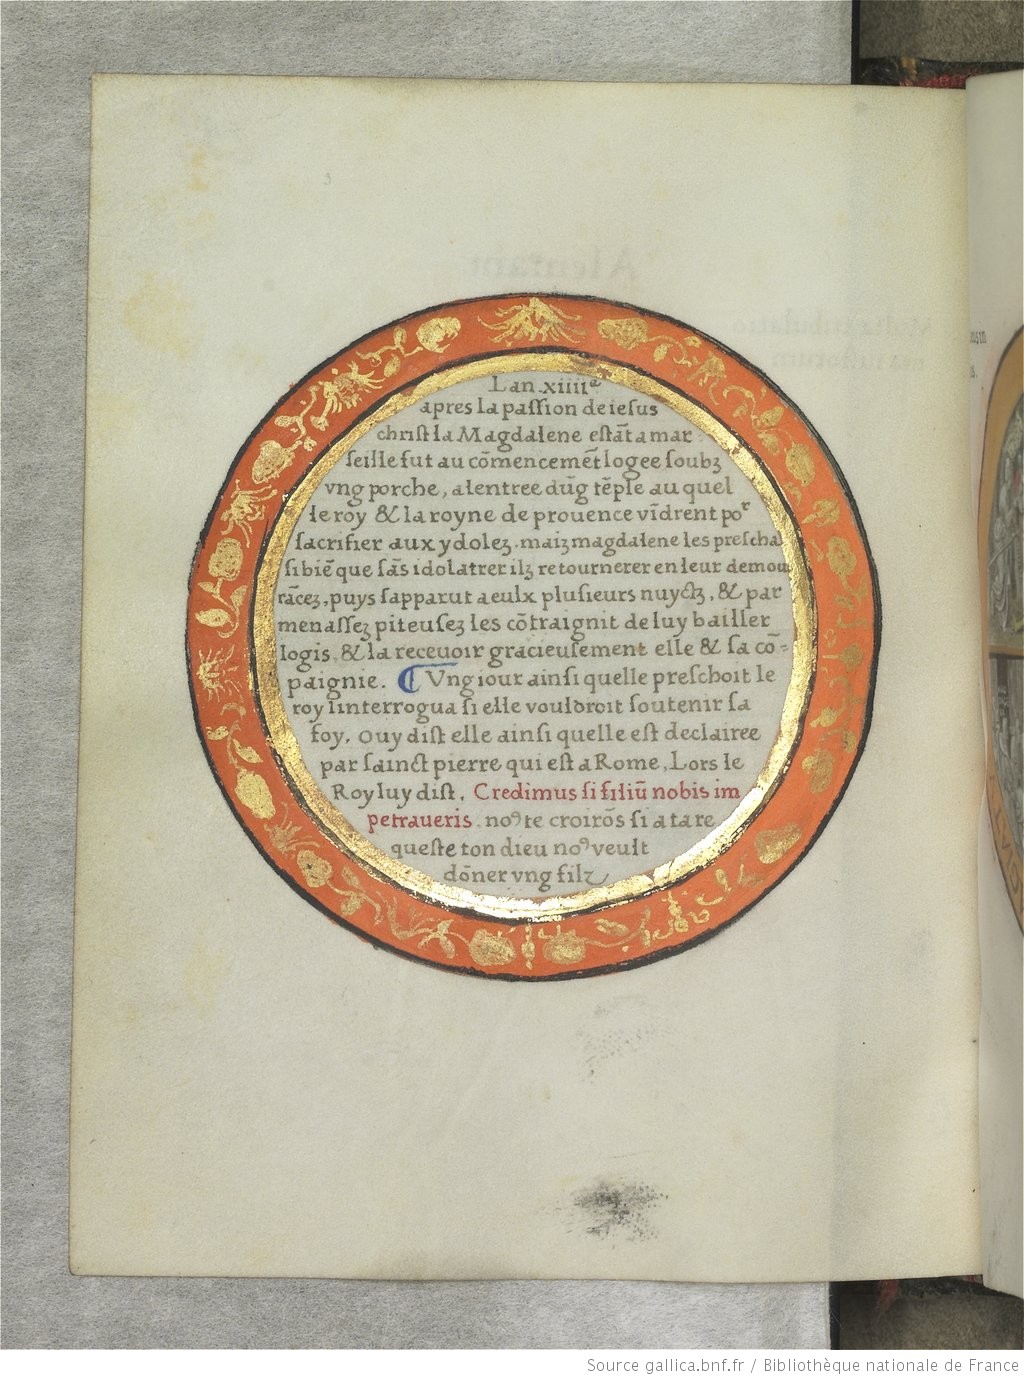 Lan.xiiiiᵉ
apres la passion de iesus
christ la Magdalene estãt a mar
seille fut au cõmencemẽt logee soubz
vng porche, a lentree dũg tẽple au quel
le roy & la royne de prouence vĩdrent poʳ
sacrifier aux ydolez. maiz magdalene les prescha
si biẽ que sãs idolatrer ilz retournerer en leur demou
rãcez, puys sapparut a eulx plusieurs nuyctz, & par
menassez piteusez les cõtraignit de luy bailler
logis, & la recevoir gracieusement elle & sa cõ=
paignie. ¶ Vng iour ainsi quelle preschoit le
roy linterrogua si elle vouldroit soutenir sa
foy. Ouy dist elle ainsi quelle est declairee
par sainct pierre qui est a Rome, Lors le
Roy luy dist. Credimus si filiũ nobis im
petraueris. noꝰ te croirõs si a ta re
queste ton dieu noꝰ veult
dõner vng filz
Source gallica.bnf.fr / Bibliothèque nationale de France